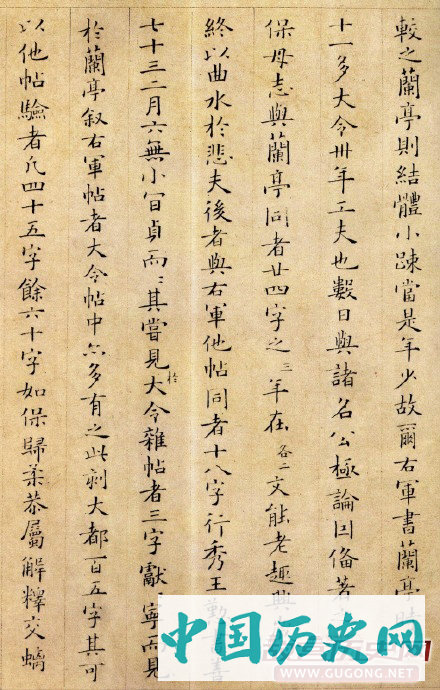 較之蘭亭則結體小踈當是年少故爾右軍書蘭亭時
十一多大令卅年工夫也數日與諸名公極論因備著
保母志與蘭亭同者廿四字之三年在各二文能老趣興
終以曲水於悲夫後者與右軍他帖同者十八字行秀王勤善
七十三二月六無小宦貞而二其嘗見大令雜帖者三字獻寧而見
於
於蘭亭叙右軍帖者大令帖中亦多有之此剥大都百五字其可
以他帖驗者凡四十五字餘六十字如保歸柔恭屬解釋交螭
中国历史网
WWW.GUGONG.NET